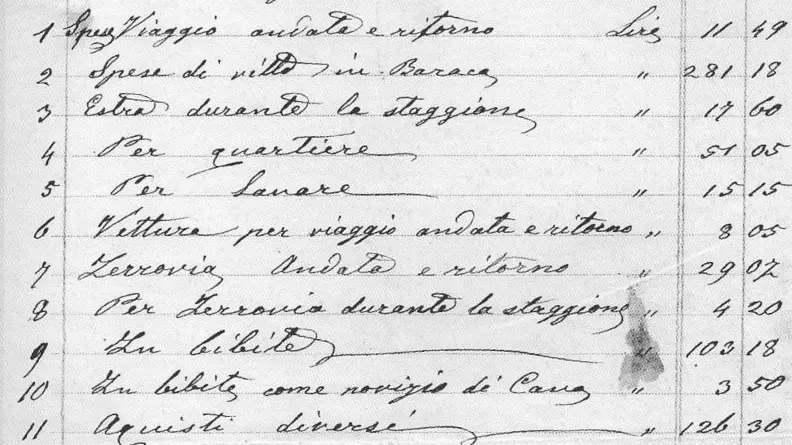 1 Spese Viaggio andata e ritorno Lire 11 49
2 Spese di vitto in Baraca " 281 18
3 Estra durante la staggione " 17 60
4 Per quartiere " 51 05
5 Per Lavare " 15 15
6 Vettura per viaggio andata e ritorno " 8 05
7 Ferrovia Andata e ritorno " 29 07
8 Per Ferrovia durante la staggione " 4 20
9 In bibite " 103 18
10 In bibite come novizio di Cava " 3 50
11 Aquisti diversi " 126 30